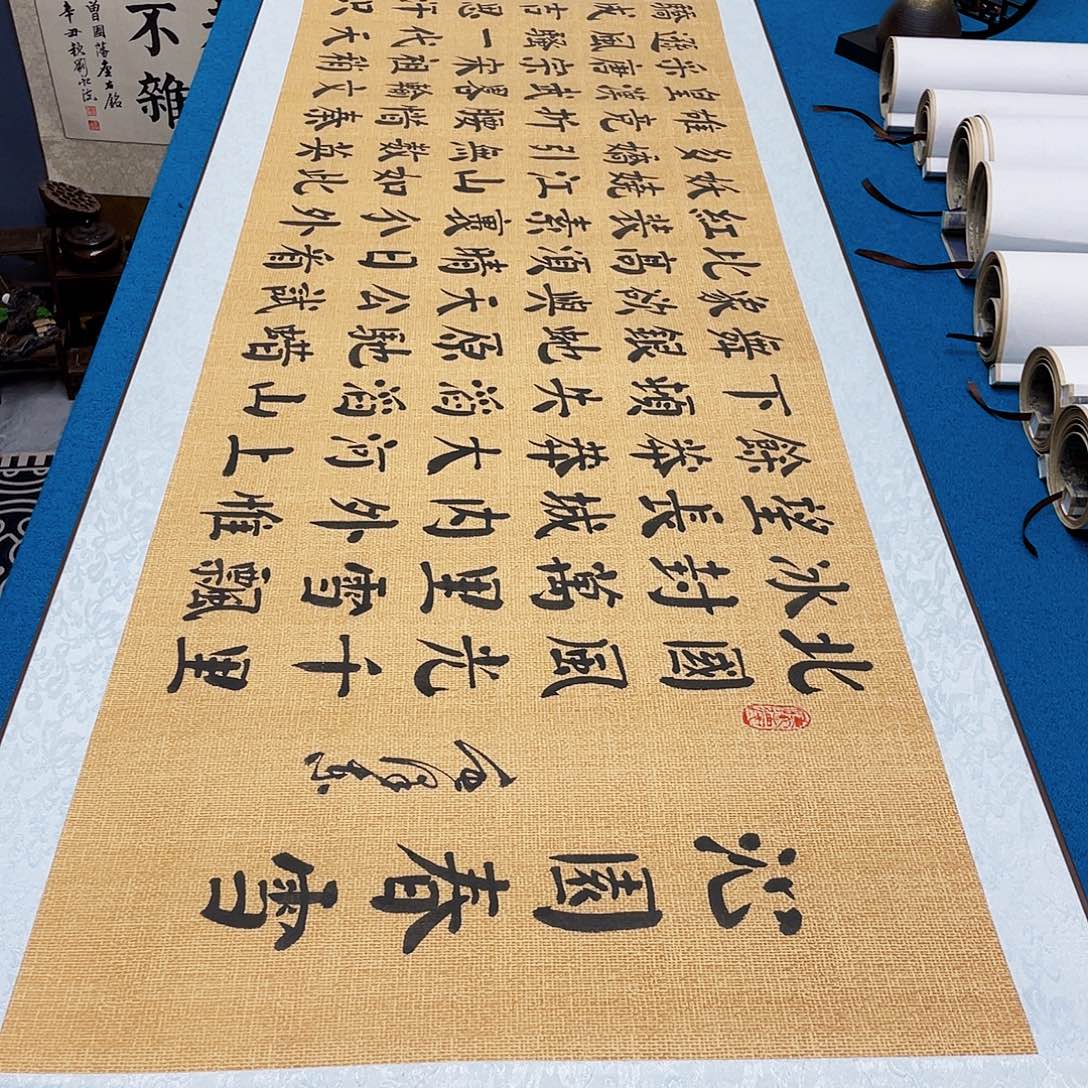 沁園春雪
毛澤東
北國風光千里
冰封萬里雪飄
望長城內外惟
餘莽莽大河上
下頓失滔滔山
舞銀蛇原馳蜡
象欲與天公試
比高須晴日看
紅裝素裹分外
妖嬈江山如此
多嬌引無數英
雄競折腰惜秦
皇漢武略輸文
采唐宗宋祖稍
遜風騷一代天
驕成吉思汗
不雜
曾國藩座右銘
辛丑秋劉